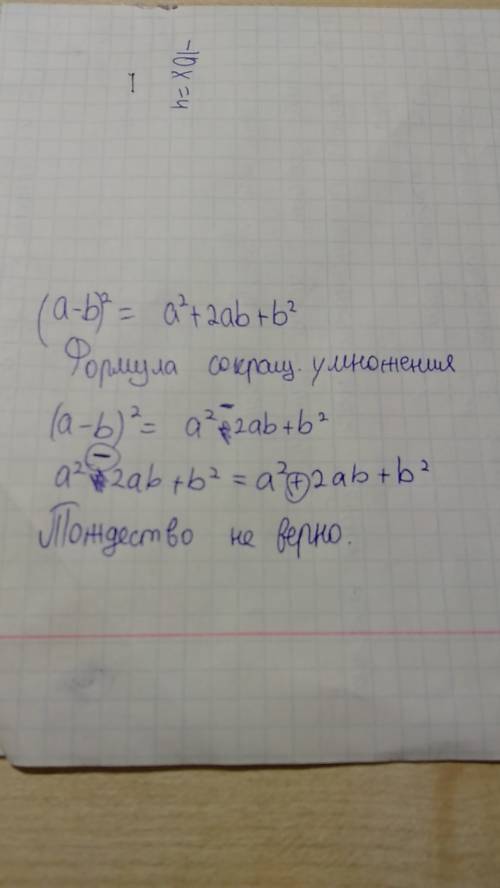 -10x=4
(a-b)² = a²+2ab+b²
Формула сокращ. умножения
(a-b)² = a²-2ab+b²
a²-2ab+b² = a²+2ab+b²
Тождество не верно.